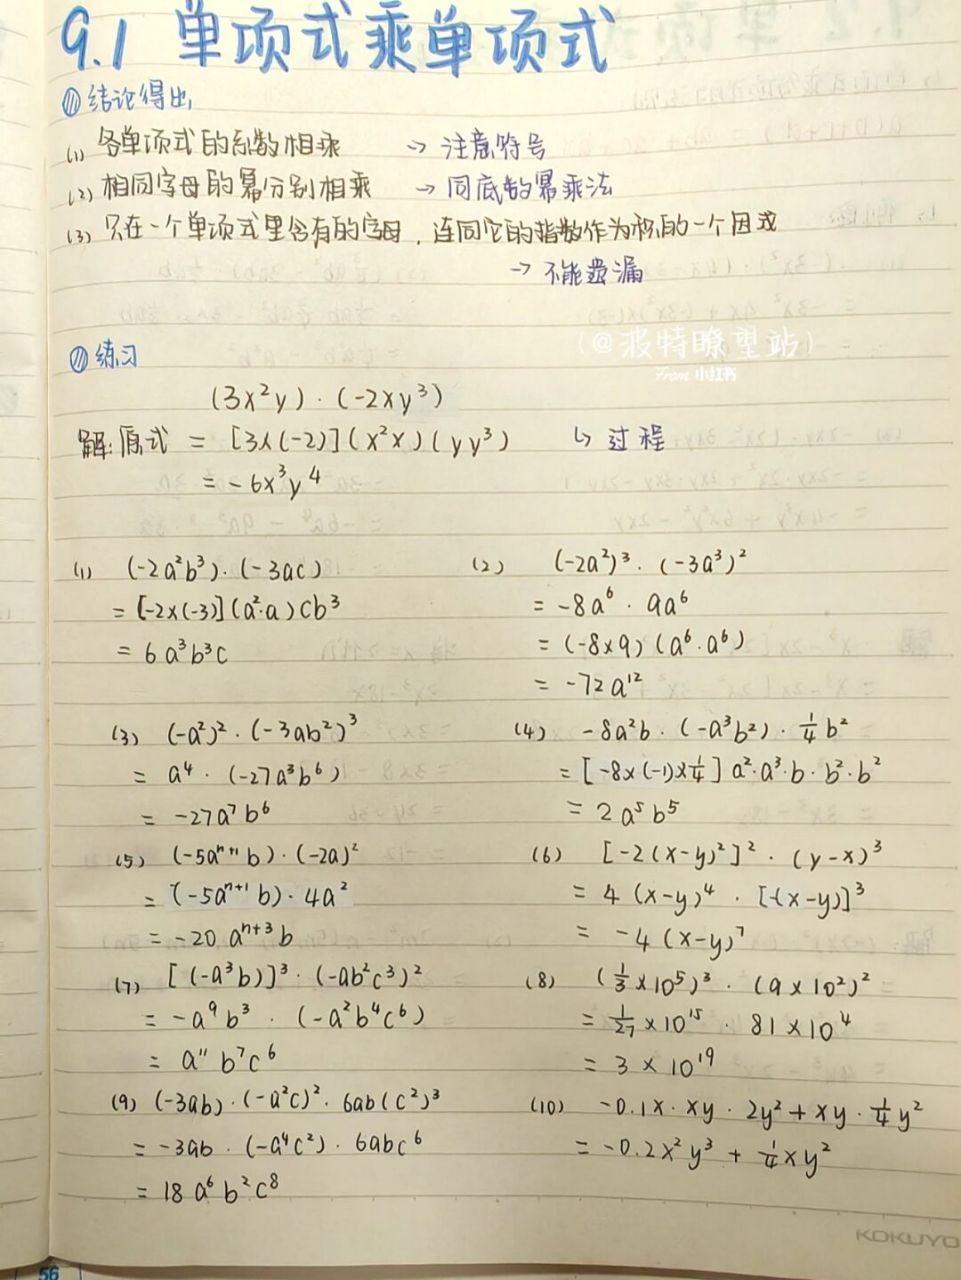 9.1 单项式乘单项式
结论得出
(1) 各单项式的系数相乘 → 注意符号
(2) 相同字母的幂分别相乘 → 同底数幂乘法
(3) 只在一个单项式里含有的字母，连同它的指数作为积的一个因式
→ 不能遗漏
(@波特瞭望站)
From 小红书
练习
(3x²y)·(-2xy³)
解:原式 = [3×(-2)](x²x)(yy³) ↳ 过程
= -6x³y⁴
(1) (-2a²b³)·(-3ac)
= [-2×(-3)](a²·a)cb³
= 6a³b³c
(2) (-2a²)³·(-3a³)²
= -8a⁶·9a⁶
= (-8×9)(a⁶·a⁶)
= -72a¹²
(3) (-a²)²·(-3ab²)³
= a⁴·(-27a³b⁶)
= -27a⁷b⁶
(4) -8a²b·(-a³b²)·¼b²
= [-8×(-1)×¼]a²·a³·b·b²·b²
= 2a⁵b⁵
(5) (-5aⁿ⁺¹b)·(-2a)²
= (-5aⁿ⁺¹b)·4a²
= -20aⁿ⁺³b
(6) [-2(x-y)²]²·(y-x)³
= 4(x-y)⁴·[-(x-y)]³
= -4(x-y)⁷
(7) [(-a³b)]³·(-ab²c³)²
= -a⁹b³·(-a²b⁴c⁶)
= a¹¹b⁷c⁶
(8) (⅓×10⁵)³·(9×10²)²
= 1/27×10¹⁵·81×10⁴
= 3×10¹⁹
(9) (-3ab)·(-a²c)²·6ab(c²)³
= -3ab·(-a⁴c²)·6abc⁶
= 18a⁶b²c⁸
(10) -0.1x·xy·2y²+xy·¼y²
= -0.2x²y³+¼xy²
KOKUYO
56